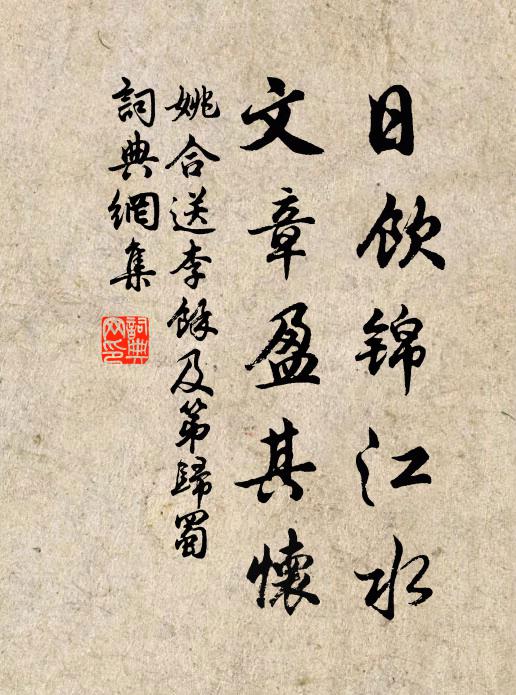 日飲锦江水
文章盈其懷
姚合送李餘及第歸蜀
詞典網集
詞典網印